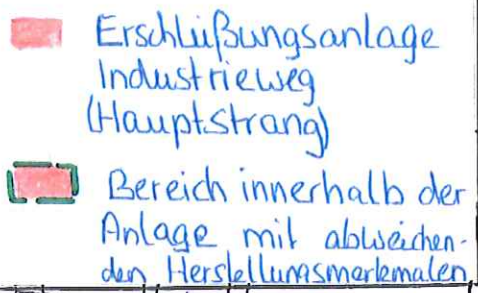 Erschlüßungsanlage
Industrieweg
(Hauptstrang)
Bereich innerhalb der
Anlage mit abweichen-
den Herstellungsmerkmalen